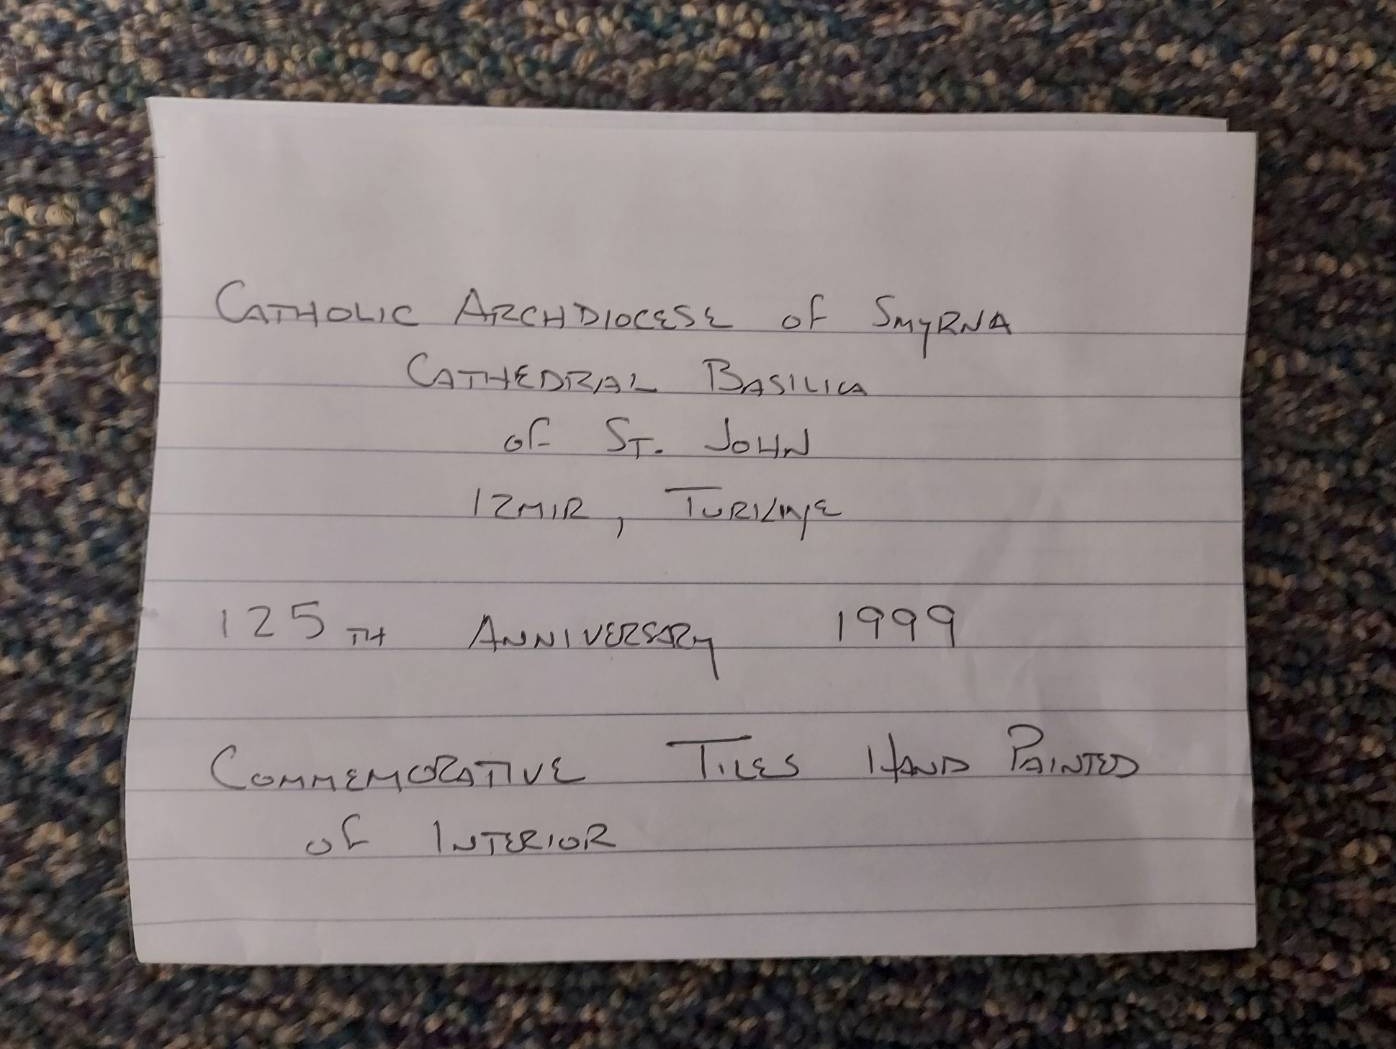 CATHOLIC ARCHDIOCESE of SMYRNA
CATHEDRAL BASILICA
of ST. JOHN
IZMIR, TURKIYE
125TH ANNIVERSARY 1999
COMMEMORATIVE TILES HAND PAINTED
of INTERIOR